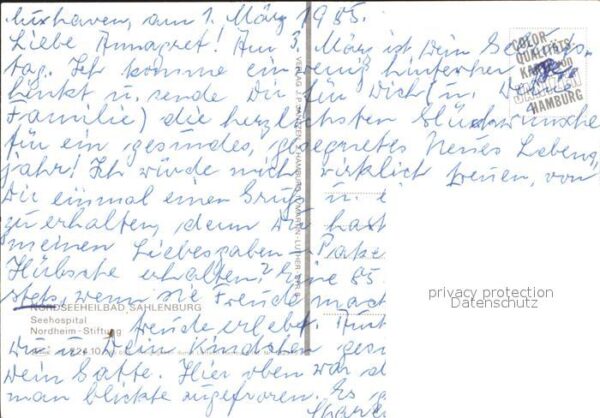 Cuxhaven, am 1. März 1985.
Liebe Annagret! Am 3. März ist Dein Geburts-
tag. Ich komme ein wenig hinterher ge-
hinkt u. sende Dir für Dich (u. Deine
Familie) die herzlichsten Glückwünsche
für ein gesundes, gesegnetes neues Lebens-
jahr! Ich würde mich wirklich freuen, von
Dir einmal einen Gruß u. e
zu erhalten, denn Du hast
meinen Liebesgaben - Pake
Hübsche erhalten? Eine 85
stets, wenn sie Freude mach
freude erlebt.
Du u. Dein Kindchen gesu
Dein Gatte. Hier oben war d
man blickte zugefroren. Es g
COLOR
QUALITÄTS
KARTE VON
JANSEN
HAMBURG
NORDSEEHEILBAD SAHLENBURG
Seehospital
Nordheim-Stiftung
privacy protection
Datenschutz